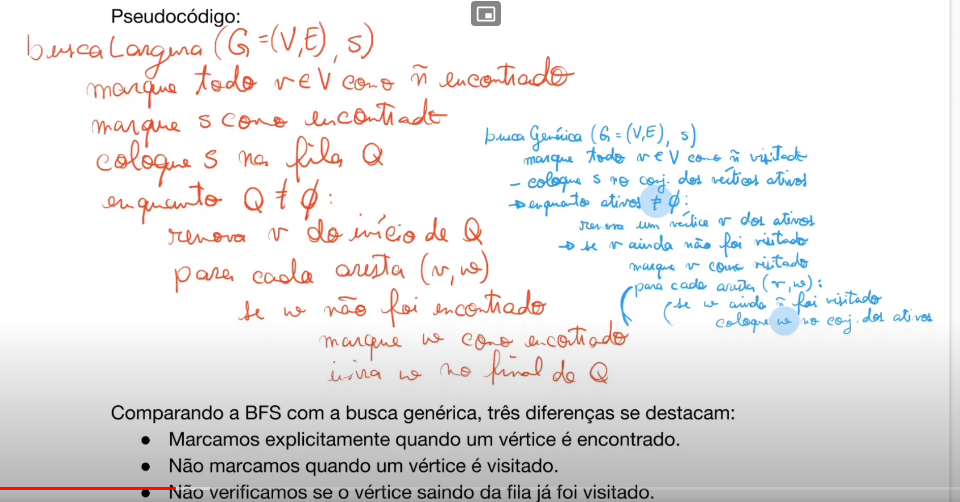 Pseudocódigo:
buscaLargura (G=(V,E), s)
marque todo v ∈ V como ñ encontrado
marque s como encontrado
coloque s na fila Q
enquanto Q ≠ ∅:
remova v do início de Q
para cada aresta (v,w)
se w não foi encontrado
marque w como encontrado
insira w no final de Q
busca Genérica (G=(V,E), s)
marque todo v ∈ V como ñ visitado
- coloque s no conj. dos vértices ativos
→ enquanto ativos ≠ ∅:
remova um vértice v dos ativos
→ se v ainda não foi visitado
marque v como visitado
para cada aresta (v,w):
se w ainda ñ foi visitado
coloque w no conj. dos ativos
Comparando a BFS com a busca genérica, três diferenças se destacam:
● Marcamos explicitamente quando um vértice é encontrado.
● Não marcamos quando um vértice é visitado.
● Não verificamos se o vértice saindo da fila já foi visitado.